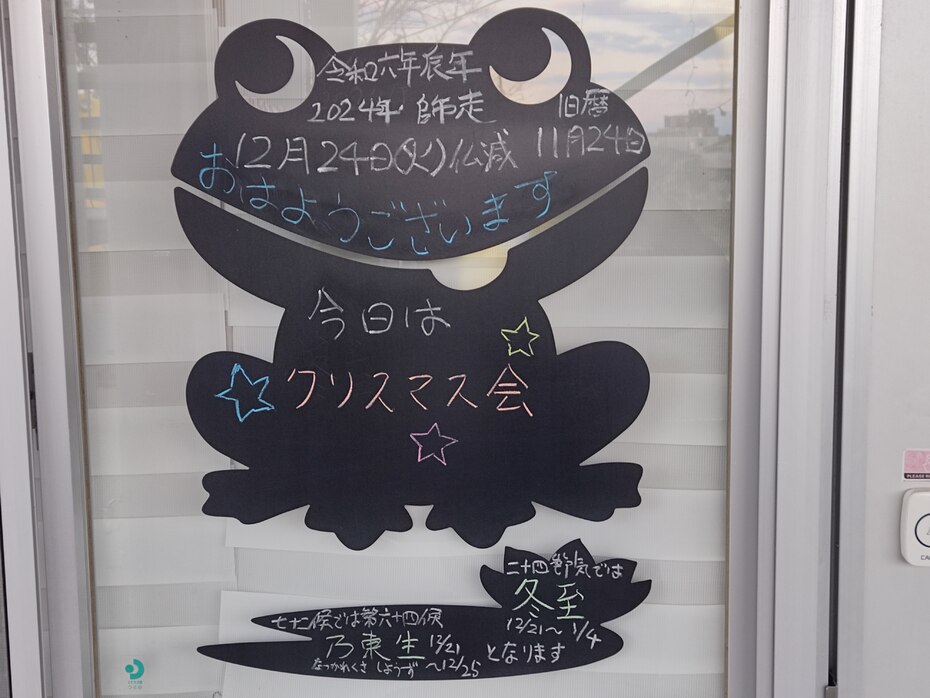 令和六年辰年
2024年・師走
旧暦
12月24日(火)仏滅
11月24日
おはようございます
今日は
クリスマス会
二十四節気では
冬至
12/21〜1/4
七十二候では第六十四候
乃東生 12/21
〜12/25
なつかれくさ しょうず
となります